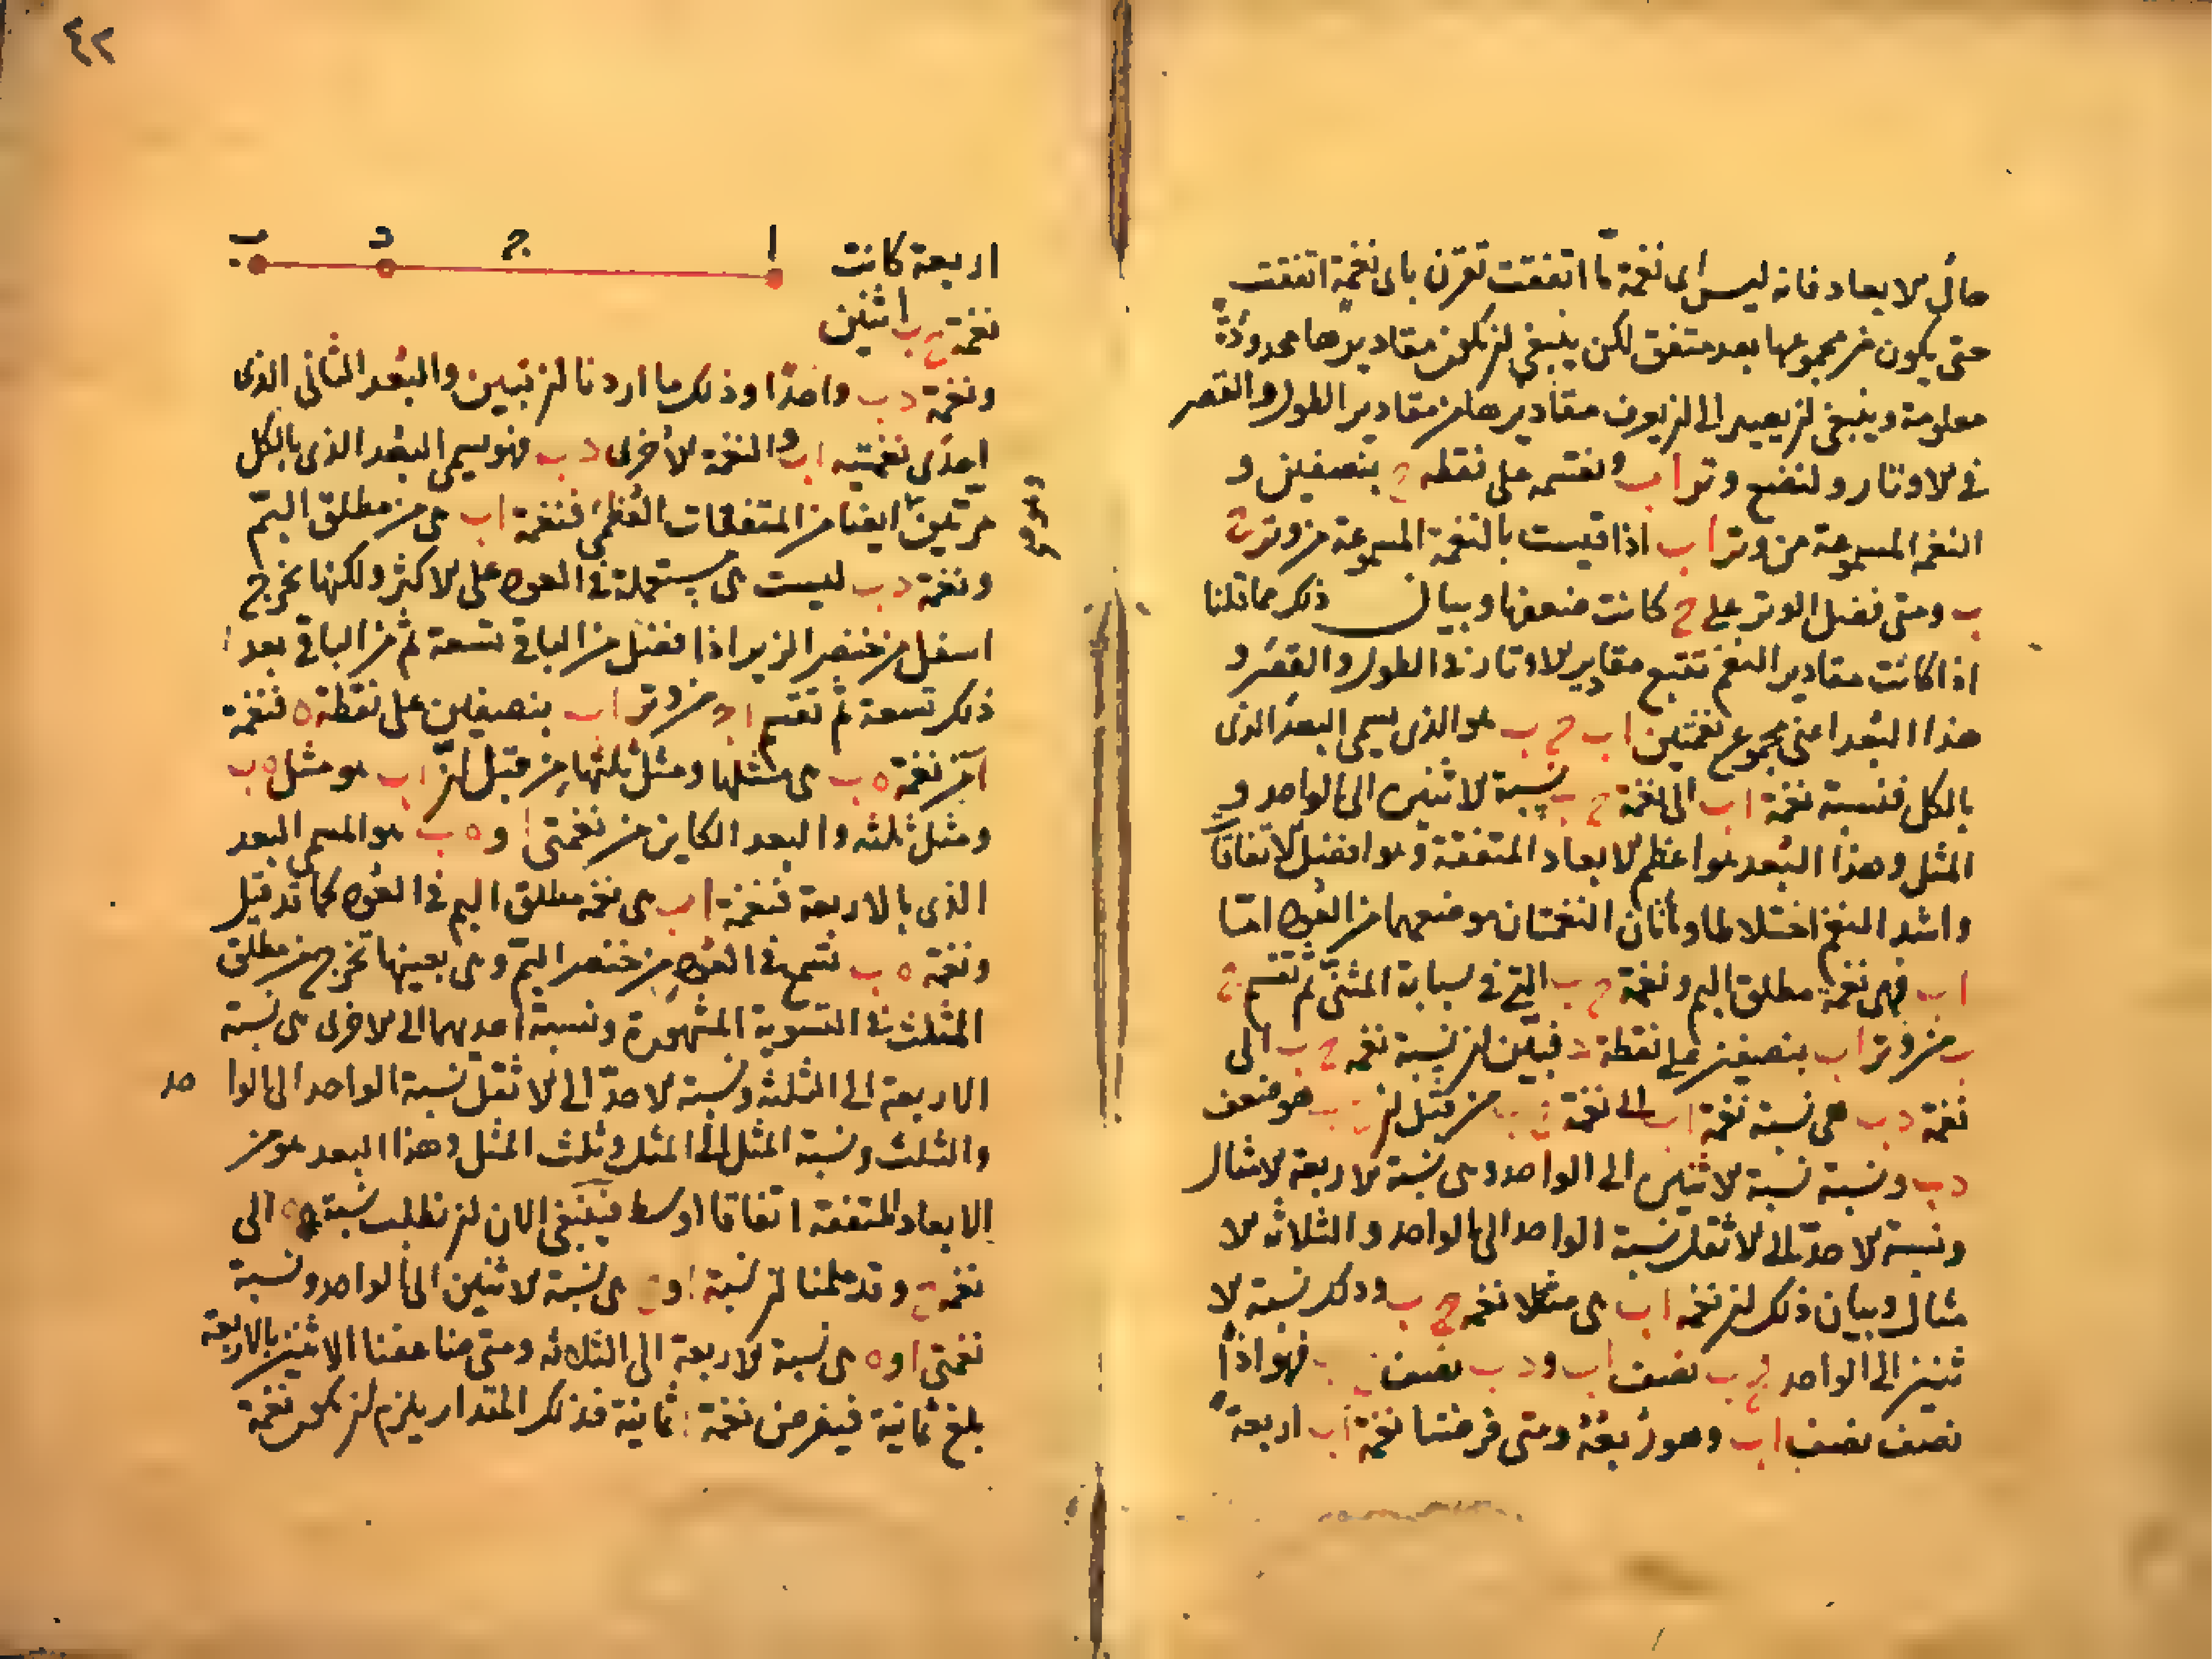 حال الابعاد فانه ليس اى نغمة ما اتفقت تقرن باى نغمة اتفقت
حتى يكون من مجموعها بعد متفق لكن ينبغى ان تكون مقاديرها محدودة
معلومة وينبغى ان يصير الى ان يعرف مقاديرها من مقادير الطول والقصر
فى الاوتار ولنضع وتر اب ونقسمه على نقطه ج بنصفين و
النغم المسموعة من وتر اب اذا قيست بالنغمة المسموعة من وتر ج
ب ومتى فضل الوتر على ج كانت ضعفها وبيان ذلك مما قلنا
اذا كانت مقادير النغم تتبع مقادير الاوتار فى الطول والقصر و
هذا البعد اعنى مجموع نغمتين اب ج ب هو الذى يسمى البعد الذى
بالكل فنسبة نغمة اب الى نغمة ج ب نسبة الاثنين الى الواحد و
المثل وهذا البعد هو اعظم الابعاد المتفقة وهو افضل الاتفاقات
واشد النغم اختلاطا وهاتان النغمتان موضعهما من العود اما
اب فهى نغمة مطلق البم ونغمة ج ب التى فى سبابة المثنى ثم نقسم ج
ب من وتر اب بنصفين على نقطة د فبين ان نسبة نغمه ج ب الى
نغمة د ب هى نسبة نغمة اب الى نغمة ج ب من قبل ان ج ب هو ضعف
د ب ونسبة نسبة الاثنين الى الواحد وهى نسبة الاربعة الامثال
ونسبة الاحد الى الاثقل نسبة الواحد الى الواحد والثلاثه الا
مثال وبيان ذلك ان نغمه اب هى مثلا نغمه ج ب وذلك نسبة الا
ثنين الى الواحد ج ب نصف اب ود ب نصف ج ب فهو اذًا
نصف نصف اب وهو ربعه ومتى فرضنا نغمة اب اربعة
٤٢
ا ج د ب
اربعة كانت
نغمة ج ب اثنين
ونغمة د ب واحدًا وذلك ما اردنا ان نبين والبعد الثانى الذى
احدى نغمتيه اب والنغمة الاخرى د ب فهو يسمى البعد الذى بالكل
مرتين ايضا من المتفقات العظمى فنغمة اب هى من مطلق البم
ونغمة د ب ليست هى مستعملة فى العود على الاكثر ولكنها تخرج
اسفل من خنصر الزير اذا فضل من الباقى تسعة ثم من الباقى بعد
ذلك تسعة ثم نقسم اد من وتر اب بنصفين على نقطة ه فنغمة
ا من نغمة ه ب هى مثلها ومثل ثلثها من قبل ان اب هو مثل ه ب
ومثل ثلثه والبعد الكاين من نغمتى ا و ه ب هو المسمى البعد
الذى بالاربعة فنغمة اب هى نغمه مطلق البم فى العود كما قد قيل
ونغمة ه ب تسمع فى العود من خنصر البم وهى بعينها تخرج من مطلق
المثلث فى التسوية المشهورة ونسبة احدهما الى الاخرى هى نسبة
الاربعة الى الثلثه ونسبة الاحد الى الاثقل نسبة الواحد الى الوا حد
والثلث ونسبة المثل الى المثل وثلث المثل وهذا البعد هو من
الابعاد المتفقة اتفاقا اوسط فينبغى الان ان نطلب نسبة ه الى
نغمه ج وقد علمنا ان نسبة ا و ج هى نسبة الاثنين الى الواحد ونسبة
نغمتى ا و ه هى نسبة الاربعة الى الثلاثه ومتى ضاعفنا الاثنين بالاربعة
بلغ ثمانية فيفرض نغمة ا ثمانية فذلك المقدار يلزم ان تكون نغمة